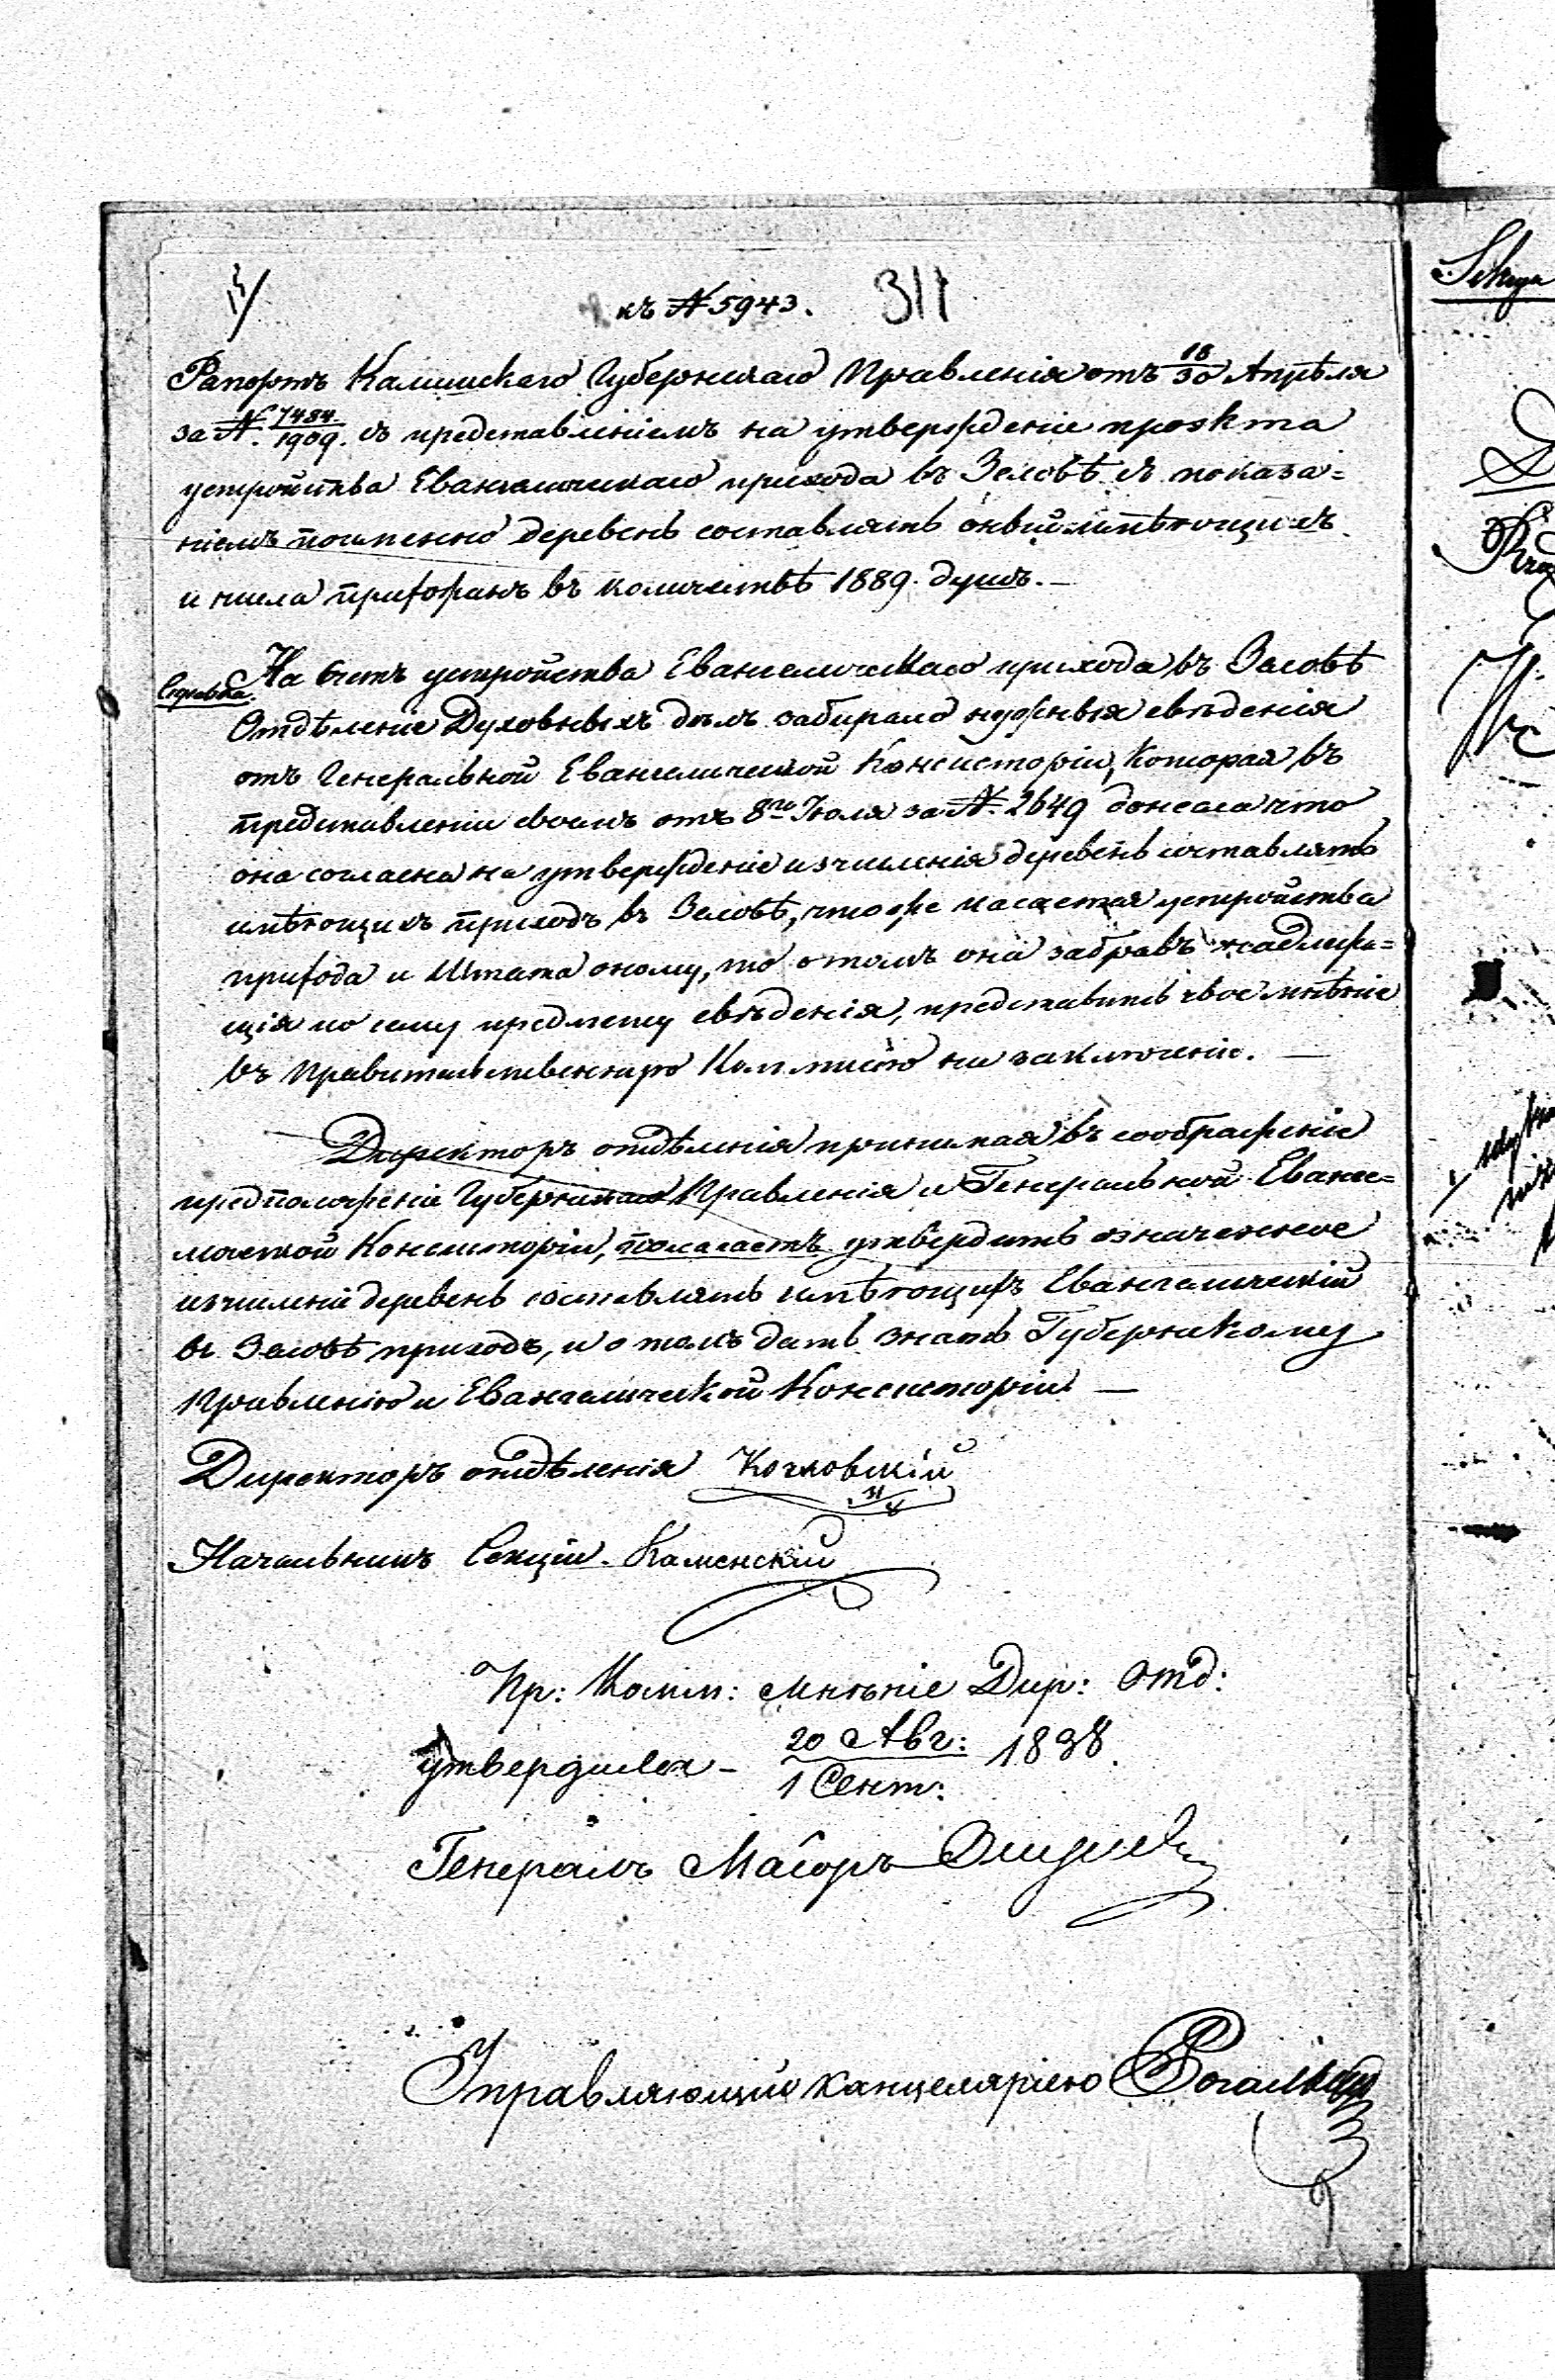 къ № 5943. 311
Рапортъ Калишскаго Губернскаго Правленія отъ 18/30 Апрѣля
за №. 7484/1909. съ представленіемъ на утвержденіе проэкта
устройства Евангелическаго прихода въ Зеловѣ съ показа=
ніемъ поименно деревень составлять оный имѣющихъ
и числа прихожанъ въ количествѣ 1889. душъ. —
Справка. На счетъ устройства Евангелическаго прихода въ Зеловѣ
Отдѣленіе Духовныхъ дѣлъ забирало нужныя свѣденія
отъ Генеральной Евангелической Консисторіи, которая въ
представленіи своемъ отъ 8го Іюля за №. 2649 донесла что
она согласна на утвержденіе изчисленія деревень составлять
имѣющихъ приходъ въ Зеловѣ, что же касается устройства
прихода и Штата оному, то о томъ она забравъ надлежа=
щія по сему предмету свѣденія, представитъ свое мнѣніе
въ Правительственную Коммисію на заключеніе. —
Директоръ отдѣленія принимая въ соображеніе
предположенія Губернскаго Правленія и Генеральной Еванге=
лической Консисторіи, полагаетъ утвердить означенное
изчисленіе деревень составлять имѣющихъ Евангелическій
въ Зеловѣ приходъ, и о томъ дать знать Губернскому
Правленію и Евангелической Консисторіи. —
Директоръ отдѣленія
Начальникъ Секціи. Каменскій
Пр: Комм: мнѣніе Дир: Отд:
утвердила — 20 Авг:/1 Сент: 1838.
Генералъ Маіоръ
Управляющій канцеляріею